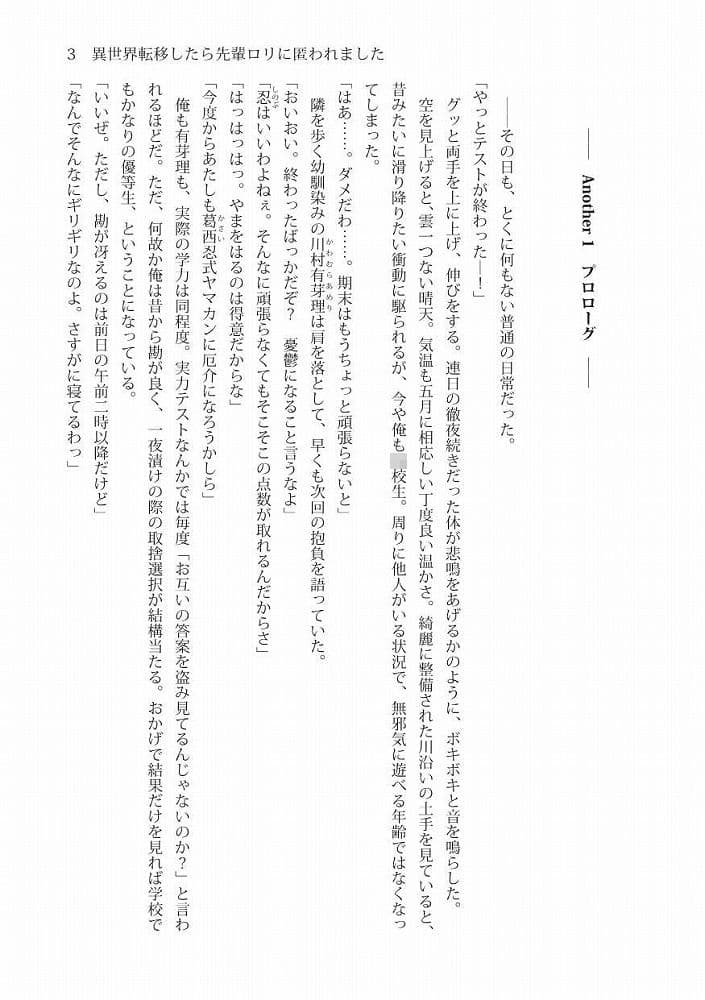 3　異世界転移したら先輩ロリに匿われました
―― Another 1　プロローグ ――
――その日も、とくに何もない普通の日常だった。
「やっとテストが終わったー！」
グッと両手を上に上げ、伸びをする。連日の徹夜続きだった体が悲鳴をあげるかのように、ボキボキと音を鳴らした。
空を見上げると、雲一つない晴天。気温も五月に相応しい丁度良い温かさ。綺麗に整備された川沿いの土手を見ていると、
昔みたいに滑り降りたい衝動に駆られるが、今や俺も校生。周りに他人がいる状況で、無邪気に遊べる年齢ではなくなっ
てしまった。
「はあ……。ダメだわ……。期末はもうちょっと頑張らないと」
隣を歩く幼馴染みの川村有芽理は肩を落として、早くも次回の抱負を語っていた。
かわむらあめり
「おいおい。終わったばっかだぞ？　憂鬱になること言うなよ」
「忍はいいわよねぇ。そんなに頑張らなくてもそこそこの点数が取れるんだからさ」
しのぶ
「はっはっはっ。やまをはるのは得意だからな」
「今度からあたしも葛西忍式ヤマカンに厄介になろうかしら」
かさい
俺も有芽理も、実際の学力は同程度。実力テストなんかでは毎度「お互いの答案を盗み見てるんじゃないのか？」と言わ
れるほどだ。ただ、何故か俺は昔から勘が良く、一夜漬けの際の取捨選択が結構当たる。おかげで結果だけを見れば学校で
もかなりの優等生、ということになっている。
「いいぜ。ただし、勘が冴えるのは前日の午前二時以降だけど」
「なんでそんなにギリギリなのよ。さすがに寝てるわっ」